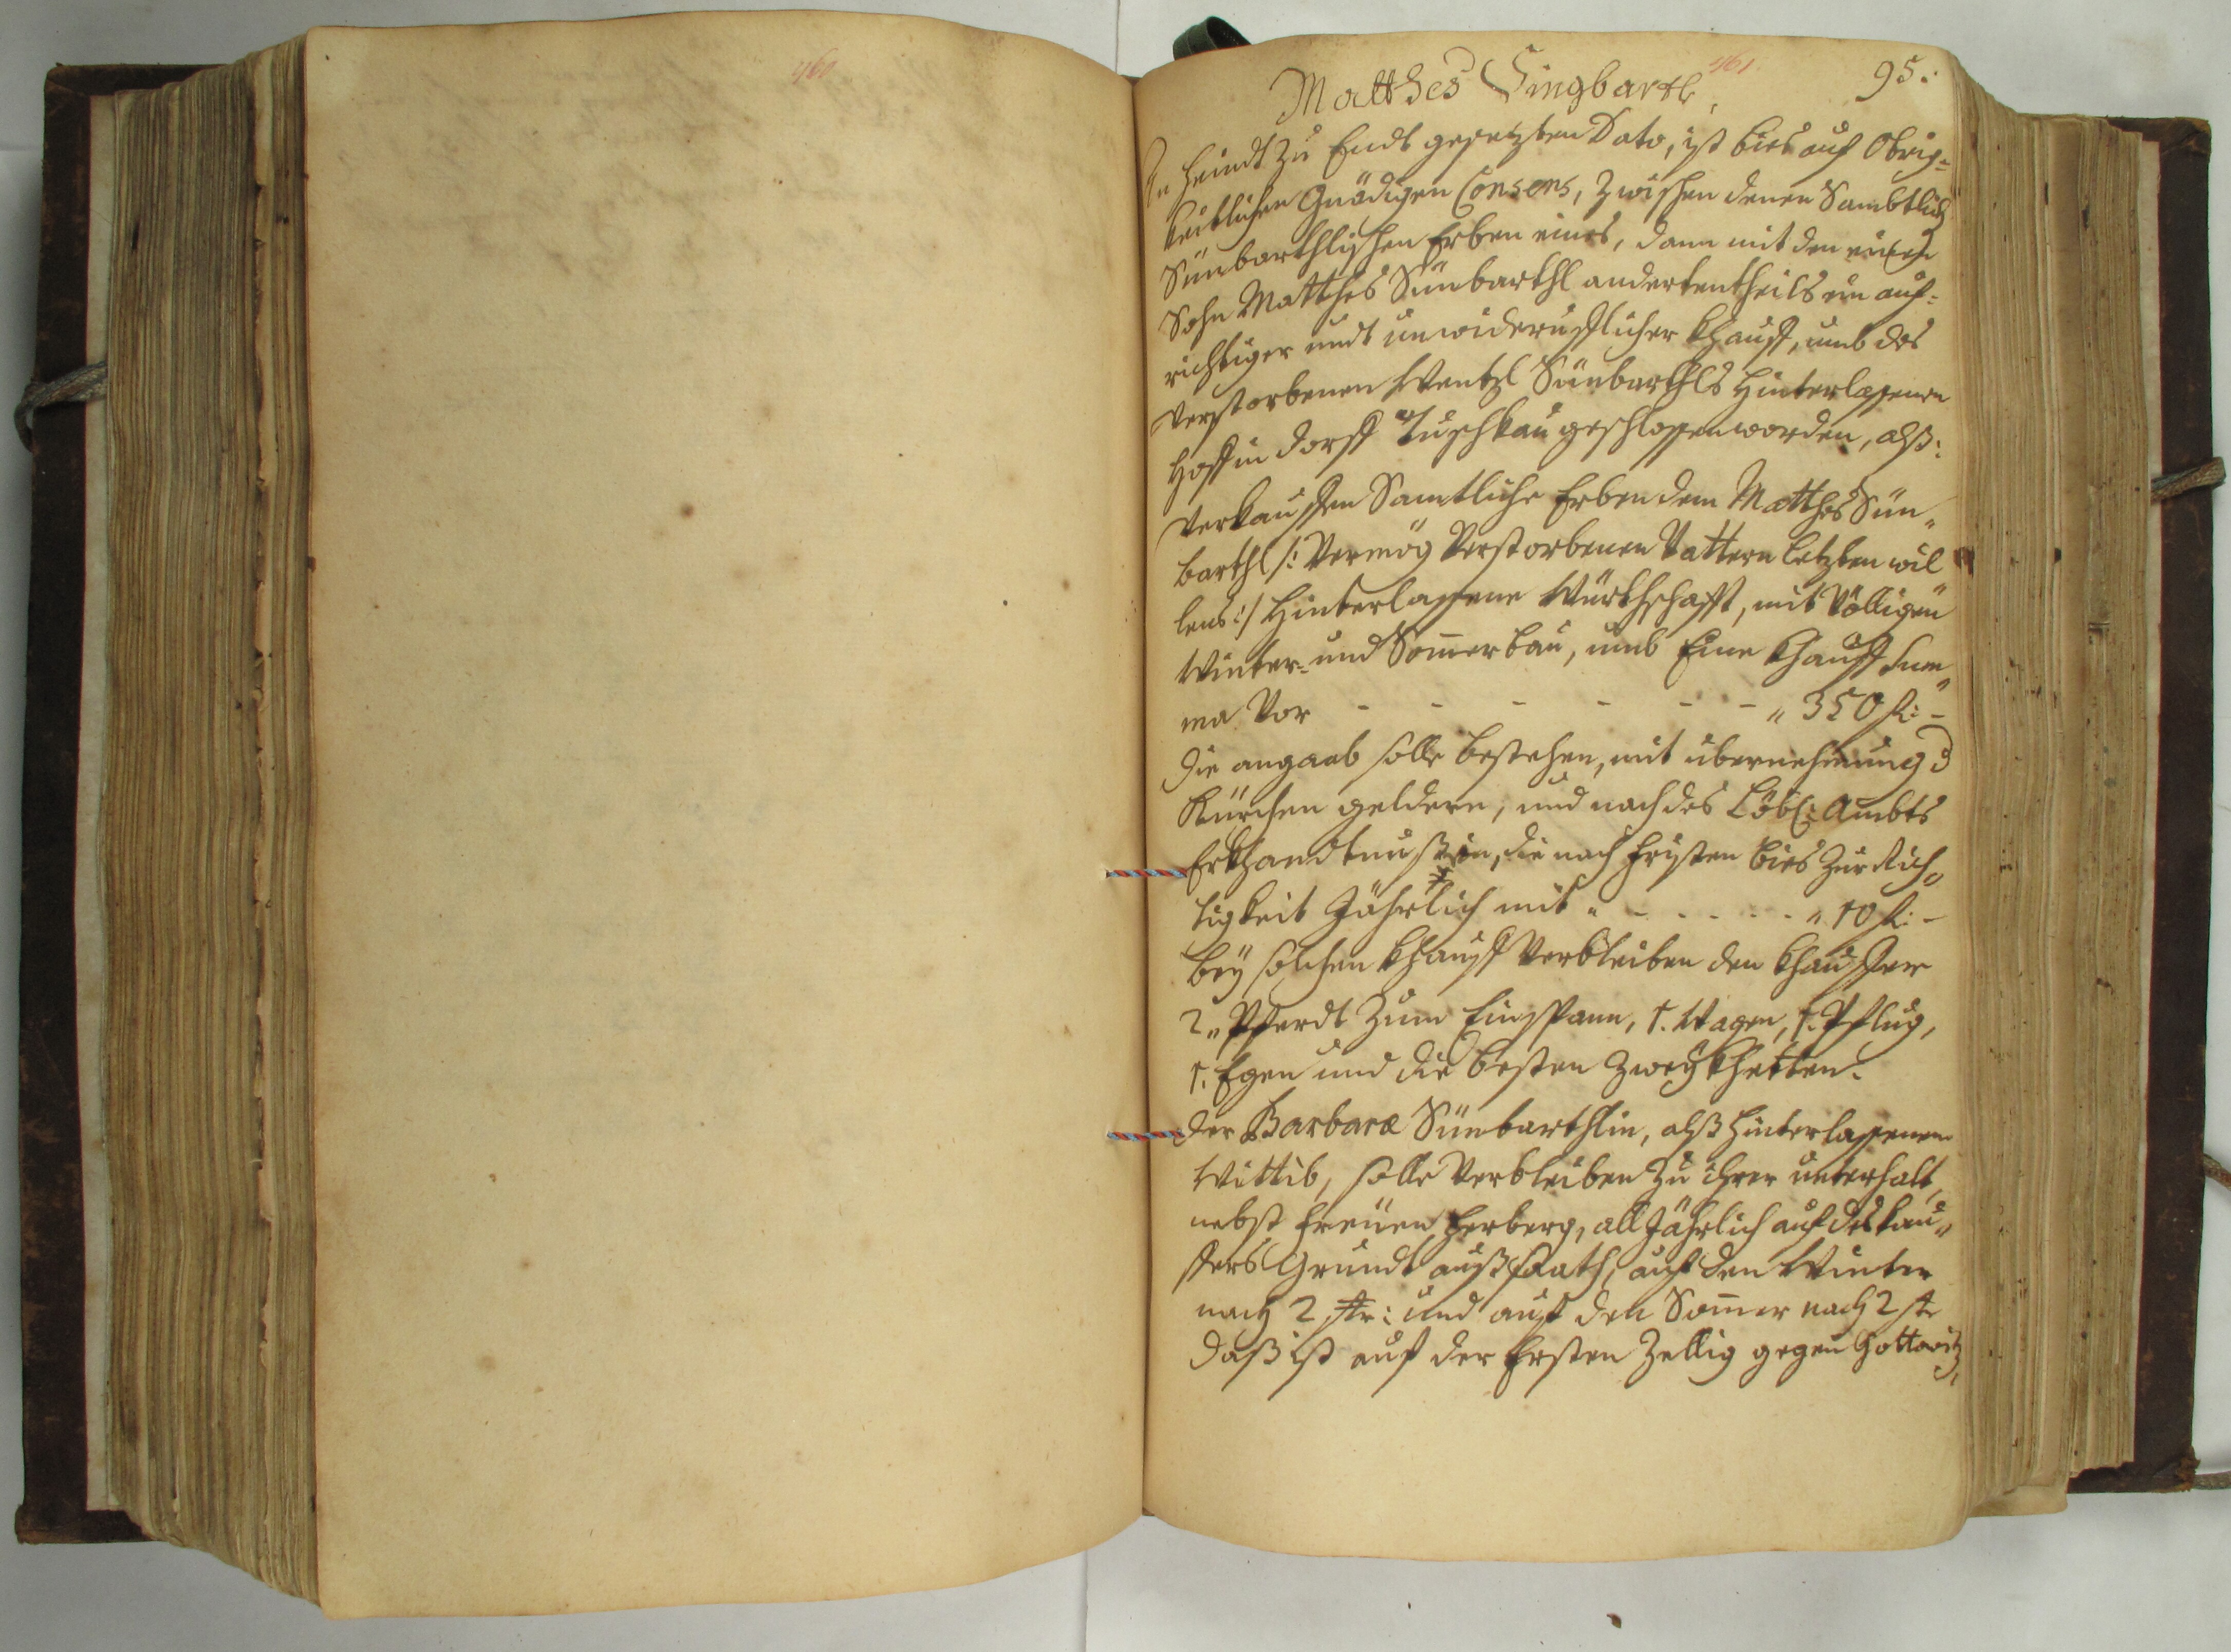 460
461.
Matthes Singbartl,
95.
An heindt zu Endt gesetzten Dato, ist bies auf Obrig=
keitlichen Gnädigen Consens, zwischen denen Sambtlich
Sünbarthlischen Erben eines, dann mit den
Sohn Matthes Sünbarthl andertentheils ein auf=
richtiger undt unwiderrufflicher Khauff, umb des
Verstorbenen Wentzl Sünbarthls Hinterlassenen
Hoff in Dorff Tuschkau geschlossen worden, alß:
Verkauffen Samtliche Erben dem Matthes Sün„
barthl /: Vermög Verstorbenen Vattern letzten wil
lens :/ Hinterlassene Würthschafft, mit Völligen
Winter- und Somerbau, umb Eine Khauff Sum„
ma Vor - - - - - - „ 350 fl: -
Die angaab solle bestehen, mit übernehmung d
Kürchen geldern, und nach des Löbl: Ambts
Erkhandtnuß, die nach fristen bies zur Rich„
tigkeit Jährlich mit „ - - - - - „ 10 fl: -
Bey solchen Khauff Verbleiben den Khauffer
2„ Pferdt zum Einspann, 1. Wagen, 1. Pflug,
1. Egen und die besten zwey Khetten.
Der Barbaræ Sünbarthlin, alß Hinterlassenen
Wittib, solle Verbleiben zu ihrer unterhalt,
nebst freüen Herberg, all Jährlich auf des Kau„
ffers Grundt außsaath, auf den Winter
nach 2 str: und auf den Somer nach 2 str
Daß ist auf der Ersten Zellig gegen Gottowitz,